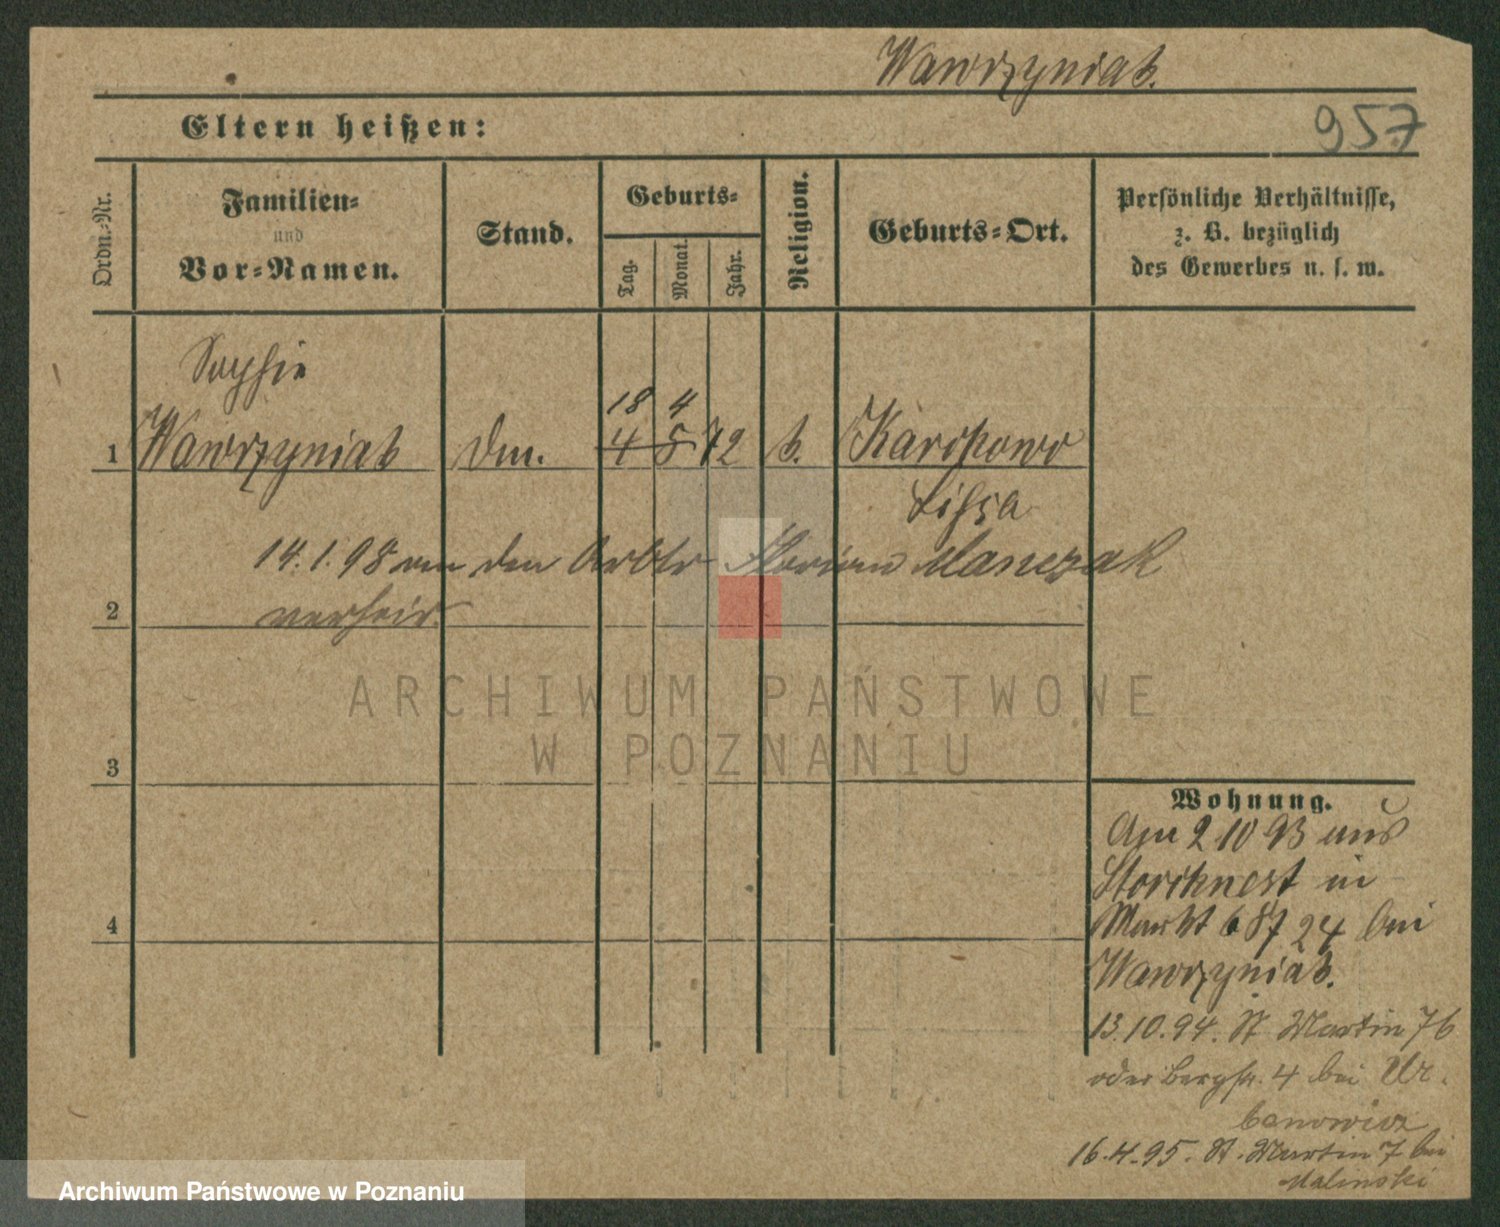 Wawrzyniak.
957
Eltern heißen:
Ordn.-Nr.
Familien-
und
Vor-Namen.
Stand.
Geburts-
Tag.
Monat.
Jahr.
Religion.
Geburts-Ort.
Persönliche Verhältnisse,
z. B. bezüglich
des Gewerbes u. s. w.
Sophie
18 4
1 Wawrzyniak 4 5 72 k. Karchowo
Lissa
14.1.98 an den Arbtr Florian Manczak
2 verheir.
ARCHIWUM PAŃSTWOWE
W POZNANIU
3
4
Wohnung.
Am 2 10 93 aus
Storchnest in
Markt 687 24 bei
Wawrzyniak.
13.10.94. St Martin 76
oder Bergstr. 4 bei Ur-
banowicz
16.4.95. St. Martin 7 bei
Malinski
Archiwum Państwowe w Poznaniu